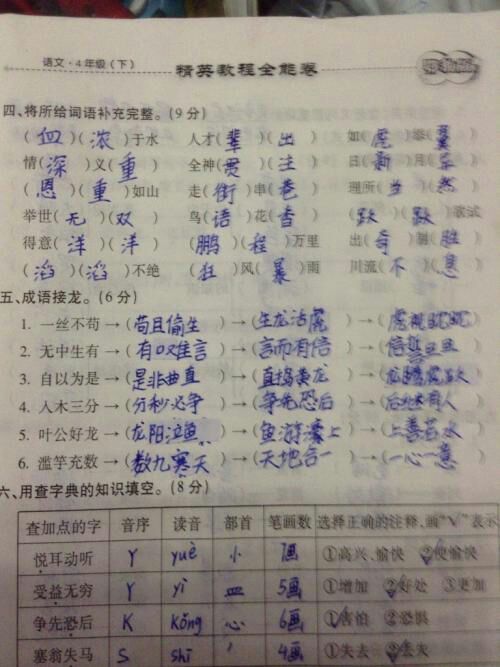 语文·4年级(下) 精英教程全能卷
四、将所给词语补充完整。(9分)
(血)(浓)于水 人才(辈)(出) 如(虎)添(翼)
情(深)义(重) 全神(贯)(注) 日(新)月(异)
(恩)(重)如山 走(街)串(巷) 理所(当)(然)
举世(无)(双) 鸟(语)花(香) (跃)(跃)欲试
得意(洋)(洋) (鹏)(程)万里 出(奇)制(胜)
(滔)(滔)不绝 (狂)风(暴)雨 川流(不)(息)
五、成语接龙。(6分)
1. 一丝不苟→(苟且偷生)→(生龙活虎)→(虎视眈眈)
2. 无中生有→(有口难言)→(言而有信)→(信誓旦旦)
3. 自以为是→(是非曲直)→(直捣黄龙)→(龙腾虎跃)
4. 入木三分→(分秒必争)→(争先恐后)→(后继有人)
5. 叶公好龙→(龙阳泣鱼)→(鱼游濠上)→(上善若水)
6. 滥竽充数→(数九寒天)→(天地合一)→(一心一意)
六、用查字典的知识填空。(8分)
查加点的字 音序 读音 部首 笔画数 选择正确的注释,画“√”表示
悦耳动听 Y yuè 忄 7画 ①高兴、愉快 ②使愉快
受益无穷 Y yì 皿 5画 ①增加 ②好处 ③更加
争先恐后 K kǒng 心 6画 ①害怕 ②恐惧
塞翁失马 S shī 丿 4画 ①失去 ②丢失